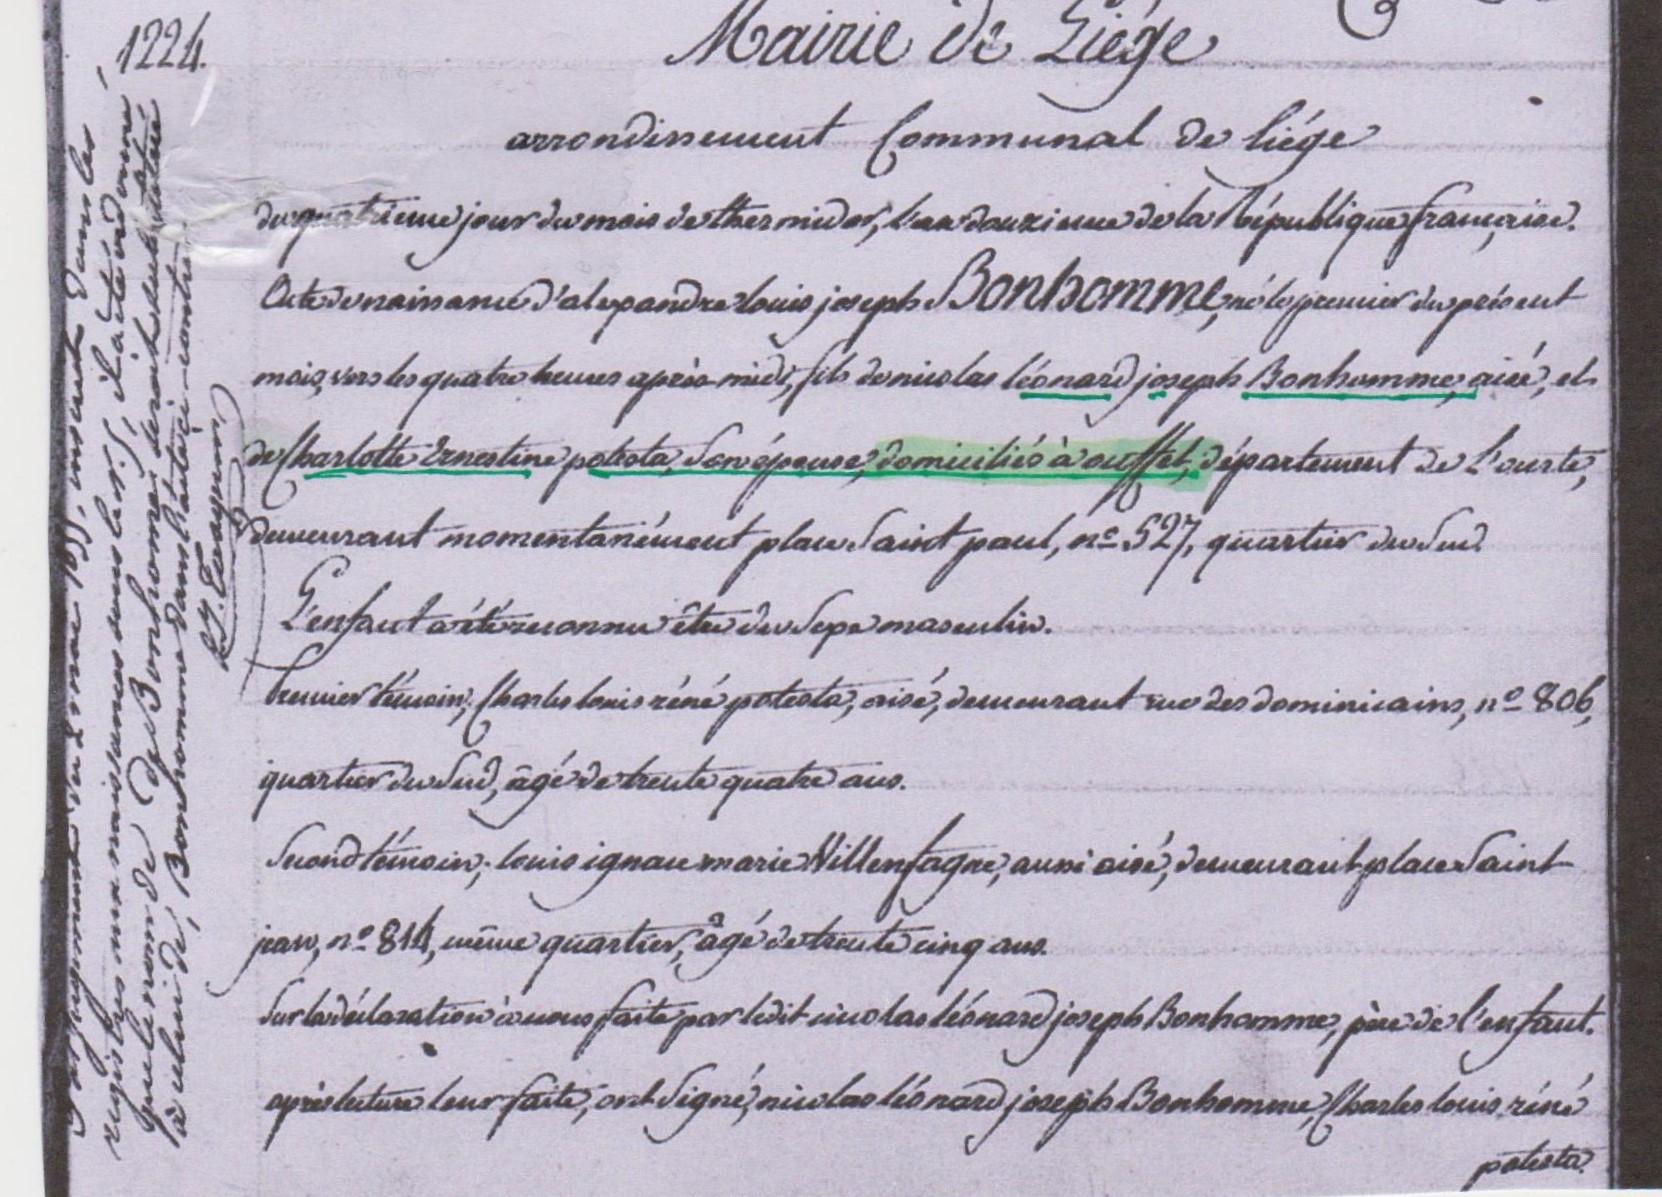 1224.
Mairie de Liége
arrondissement Communal de Liége
du quatrieme jour du mois de thermidor, l'an douzieme de la République française.
Acte de naissance d'alexandre louis joseph Bonhomme, né le premier du présent
mois, vers les quatre heures après-midi, fils de nicolas léonard joseph Bonhomme, aisé, et
de Charlotte Ernestine potesta, Son épouse, domiciliés à ouffet, département de L'ourte,
demeurant momentanément place Saint paul, nº 527, quartier du Sud.
L'enfant a été reconnu être du Sexe masculin.
Premier témoin, Charles louis réné potesta, aisé, demeurant rue des dominicains, nº 806,
quartier du Sud, âgé de trente quatre ans.
Second témoin, louis ignace marie Villenfagne, aussi aisé, demeurant place Saint
jean, nº 814, même quartier, âgé de trente cinq ans.
Sur la déclaration à nous faite par ledit nicolas léonard joseph Bonhomme, père de l'enfant.
après lecture leur faite, ont Signé, nicolas léonard joseph Bonhomme, Charles louis réné
potesta.
Par jugement du 2 mai inscrit dans les
registres aux naissances
que le nom de de Bonhome serait substitué
à celui de Bonhomme dans l'acte ci-contre.